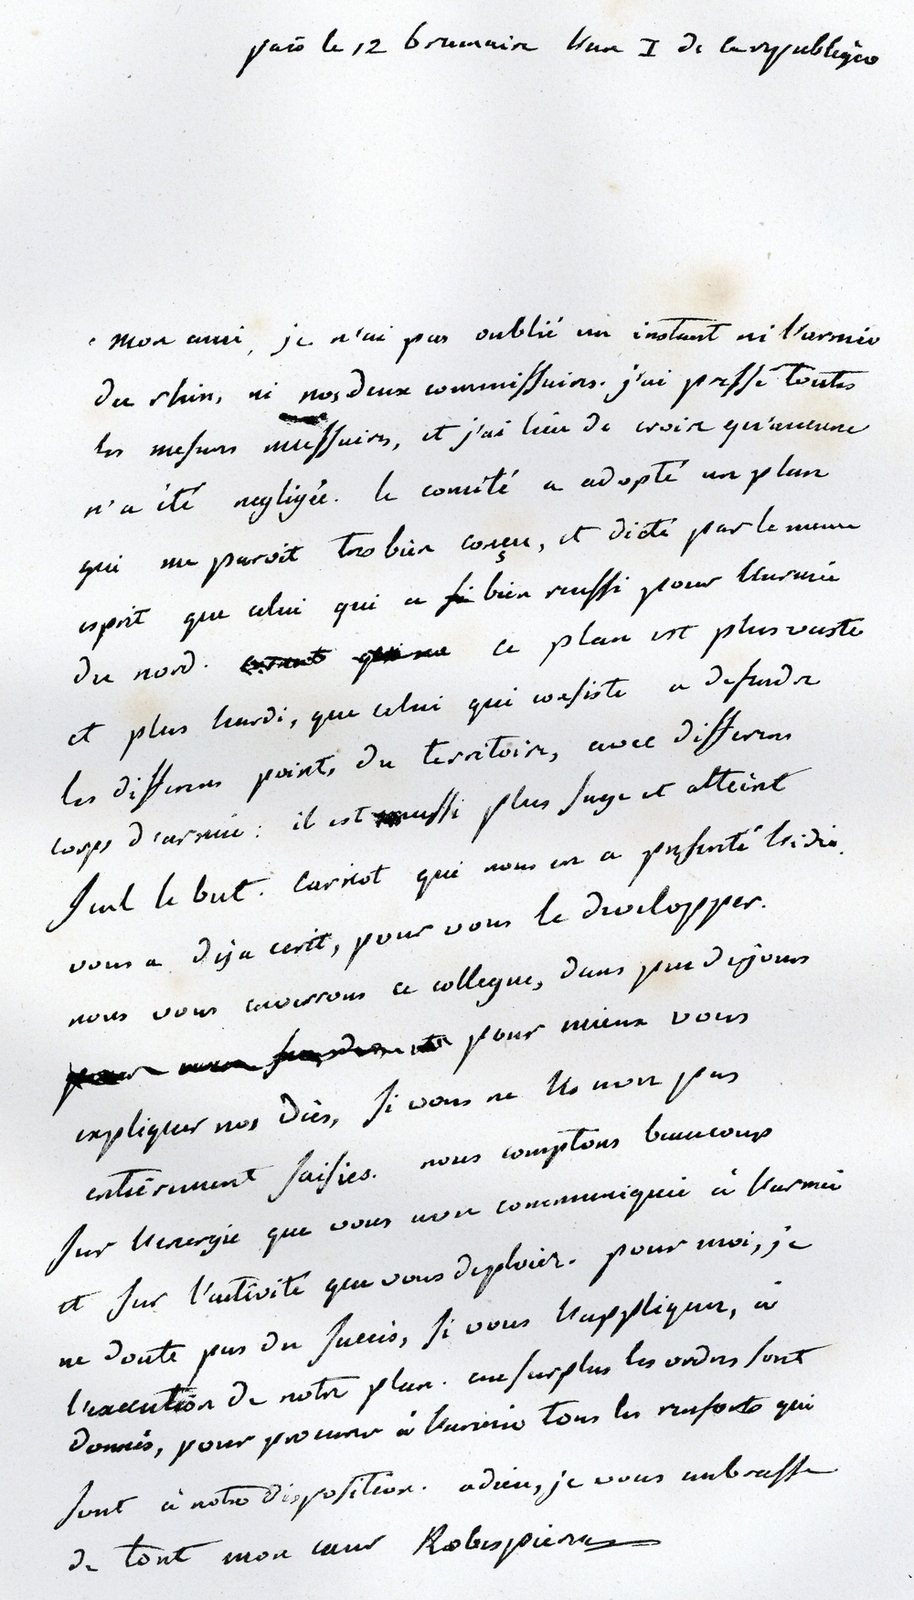 paris le 12 brumaire l'an I de la republique
mon ami, je n'ai pas oublié un instant ni l'armée
du rhin, ni nos deux commissaires. j'ai pressé toutes
les mesures necessaires, et j'ai lieu de croire qu'aucune
n'a été negligée. le comité a adopté un plan
qui me paroit tres bien conçu, et dicté par le meme
esprit que celui qui a si bien reussi pour l'armée
du nord. ce plan est plus vaste
et plus hardi, que celui qui consiste a defendre
les differens points du territoire, avec differens
corps d'armée: il est aussi plus sage et atteint
seul le but. Carnot qui nous en a presenté l'idée.
vous a deja ecrit, pour vous le developper.
nous vous enverrons ce collegue, dans peu de jours
pour mieux vous
expliquer nos idées, si vous ne les avez pas
entièrement saisies. nous comptons beaucoup
sur l'energie que vous avez communiquée à l'armée
et sur l'activité que vous deploiez. pour moi, je
ne doute pas du succès, si vous l'appliquez, à
l'execution de notre plan. au surplus les ordres sont
donnés, pour procurer à l'armée tous les renforts qui
sont à notre disposition. adieu, je vous embrasse
de tout mon cœur Robespierre